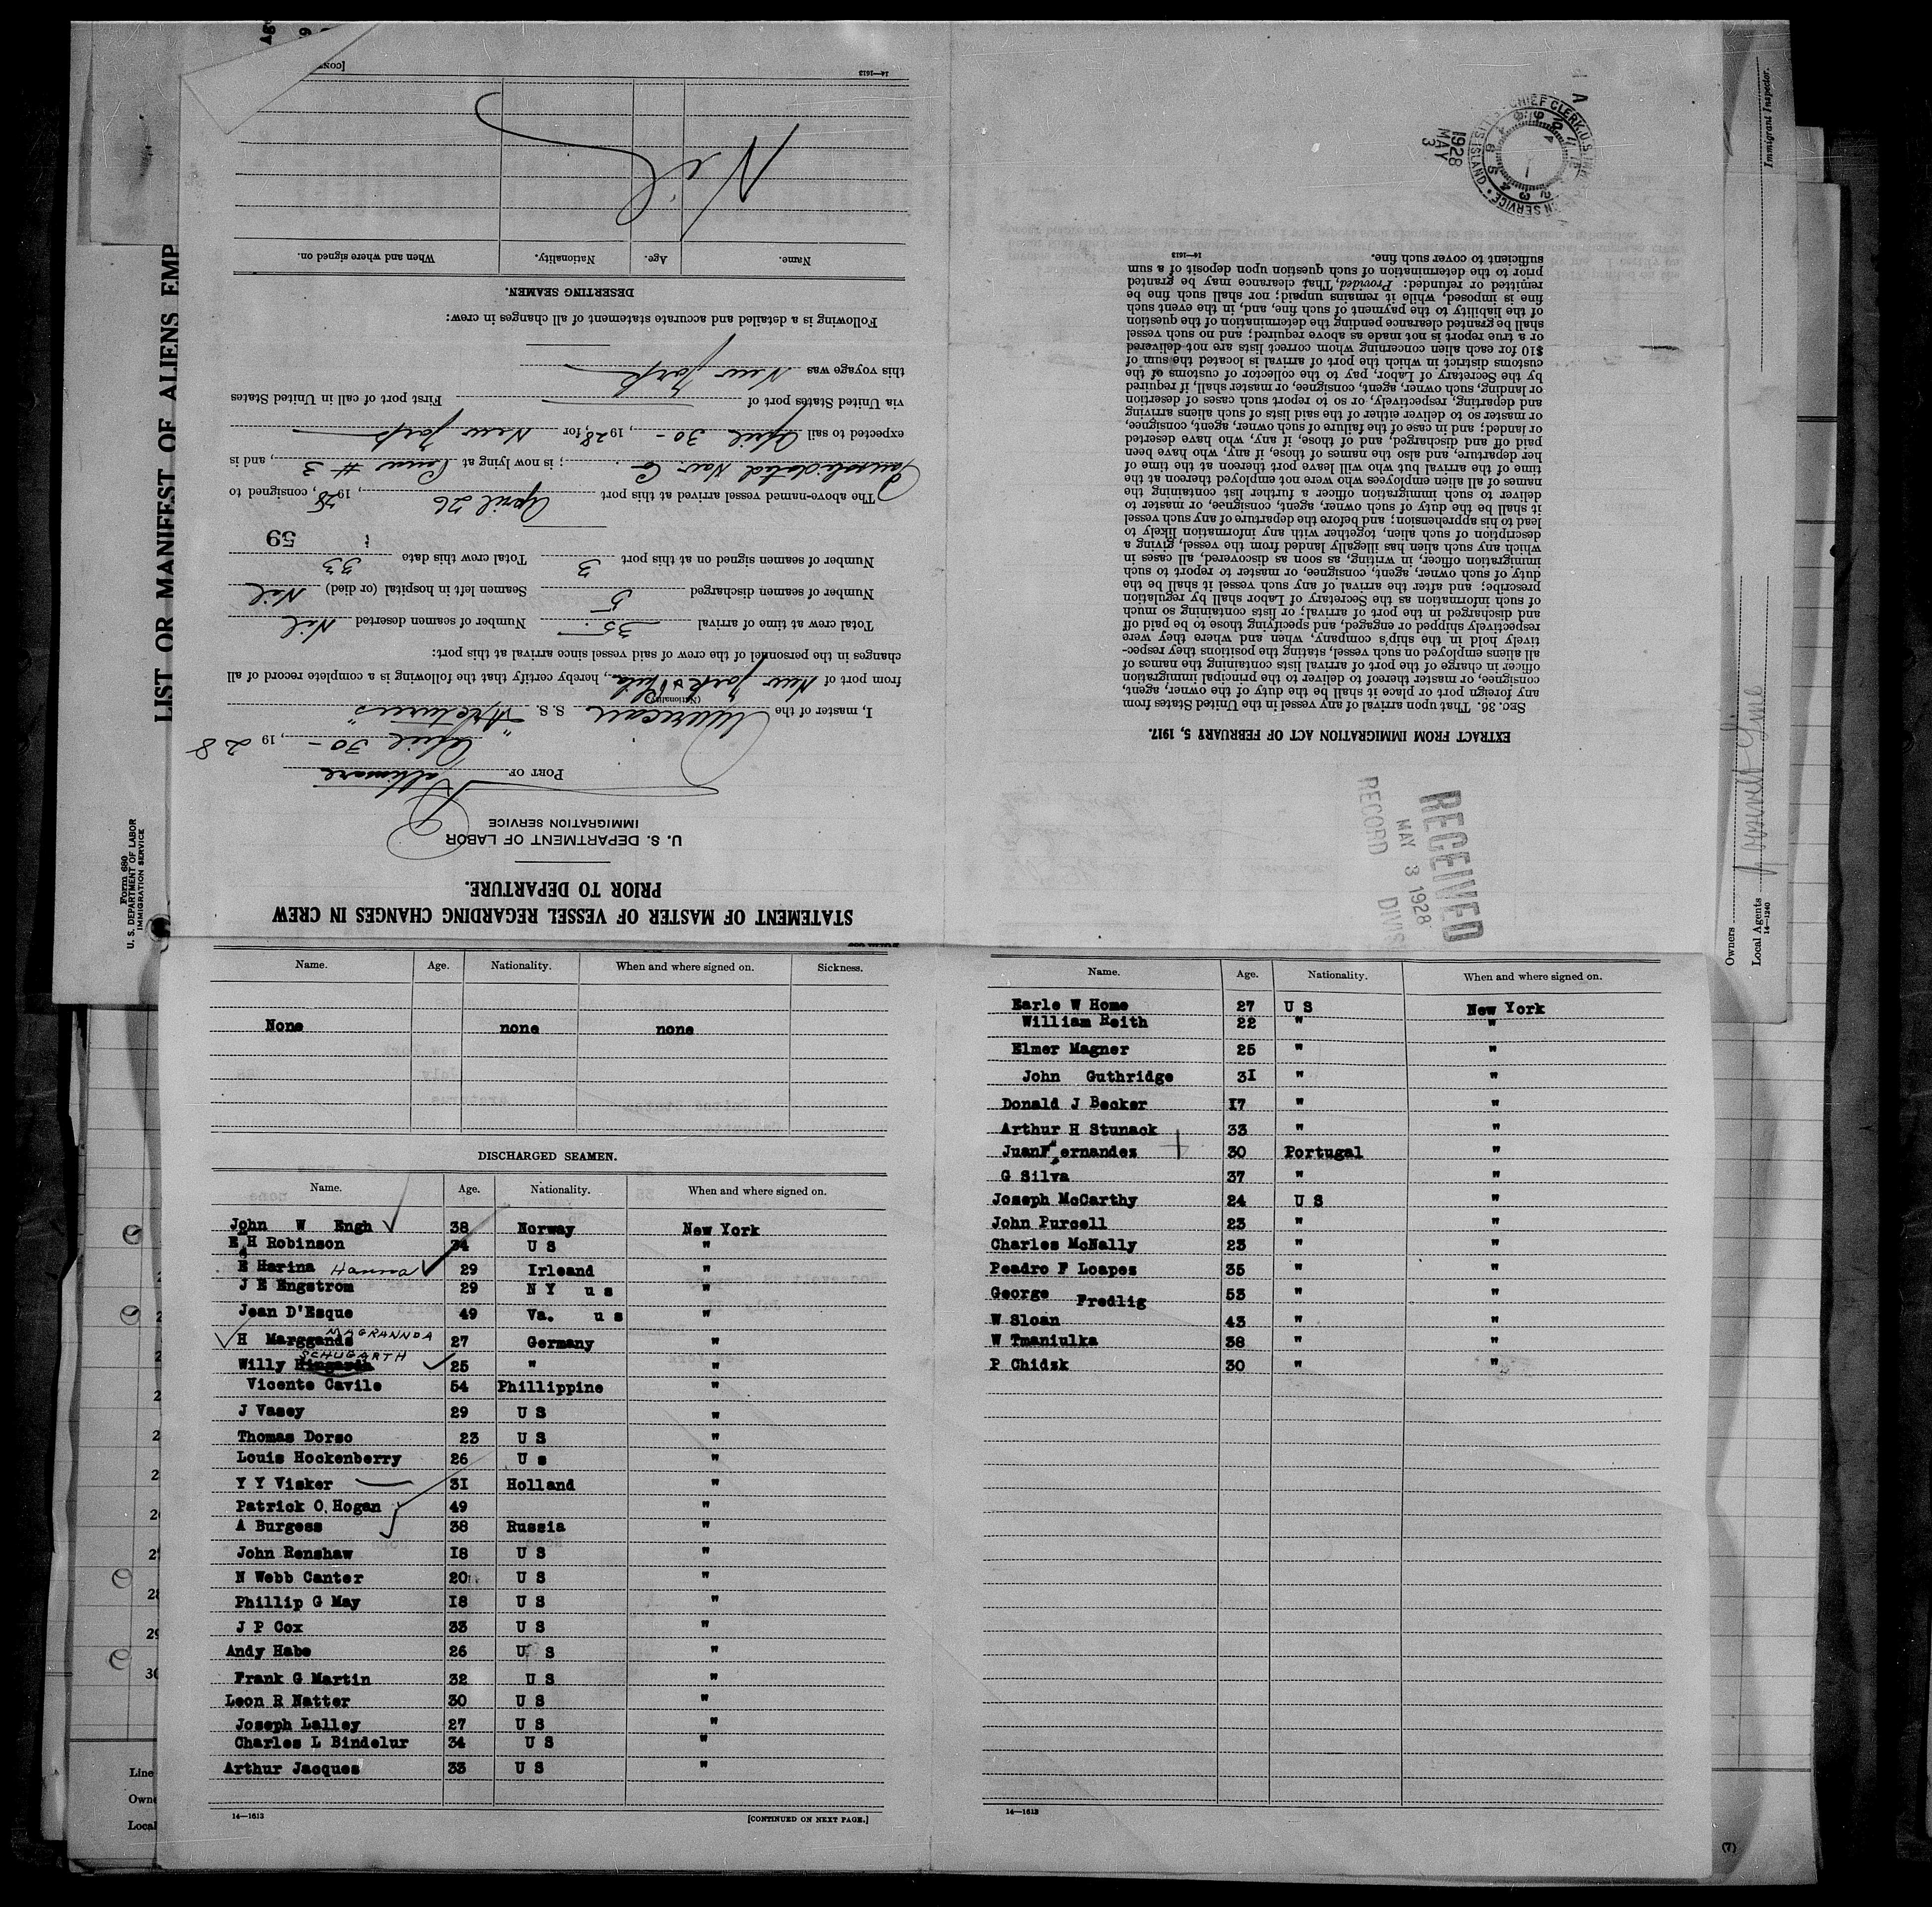 STATEMENT OF MASTER OF VESSEL REGARDING CHANGES IN CREW
PRIOR TO DEPARTURE.
U. S. DEPARTMENT OF LABOR
IMMIGRATION SERVICE
PORT OF Baltimore
April 30 - , 19 28
I, master of the American S. S. "Arcturus"
(Nationality)
from port of New York & Phila, hereby certify that the following is a complete record of all
changes in the personnel of the crew of said vessel since arrival at this port:
Total crew at time of arrival 35 Number of seamen deserted Nil
Number of seamen discharged 5 Seamen left in hospital (or died) Nil
Number of seamen signed on at this port 3 Total crew this date 33
59
The above-named vessel arrived at this port April 26, 1928, consigned to
Consolidated Nav. Co.; is now lying at # 3, and is
expected to sail April 30 -, 1928, for New York
via United States port of First port of call in United States
this voyage was New York
Following is a detailed and accurate statement of all changes in crew:
DESERTING SEAMEN.
Name. Age. Nationality. When and where signed on.
Nil
14—1613
EXTRACT FROM IMMIGRATION ACT OF FEBRUARY 5, 1917.
SEC. 36. That upon arrival of any vessel in the United States from
any foreign port or place it shall be the duty of the owner, agent,
consignee, or master thereof to deliver to the principal immigration
officer in charge of the port of arrival lists containing the names of
all aliens employed on such vessel, stating the positions they respec-
tively hold in the ship's company, when and where they were
respectively shipped or engaged, and specifying those to be paid off
and discharged in the port of arrival; or lists containing so much
of such information as the Secretary of Labor shall by regulation
prescribe; and after the arrival of any such vessel it shall be the
duty of such owner, agent, consignee, or master to report to such
immigration officer, in writing, as soon as discovered, all cases in
which any such alien has illegally landed from the vessel, giving a
description of such alien, together with any information likely to
lead to his apprehension; and before the departure of any such vessel
it shall be the duty of such owner, agent, consignee, or master to
deliver to such immigration officer a further list containing the
names of all alien employees who were not employed thereon at the
time of the arrival but who will leave port thereon at the time of
her departure, and also the names of those, if any, who have been
paid off and discharged, and of those, if any, who have deserted
or landed; and in case of the failure of such owner, agent, consignee,
or master so to deliver either of the said lists of such aliens arriving
and departing, respectively, or so to report such cases of desertion
or landing, such owner, agent, consignee, or master shall, if required
by the Secretary of Labor, pay to the collector of customs of the
customs district in which the port of arrival is located the sum of
$10 for each alien concerning whom correct lists are not delivered
or a true report is not made as above required; and no such vessel
shall be granted clearance pending the determination of the question
of the liability to the payment of such fine, and, in the event such
fine is imposed, while it remains unpaid; nor shall such fine be
remitted or refunded: Provided, That clearance may be granted
prior to the determination of such question upon deposit of a sum
sufficient to cover such fine.
14—1613
1928
MAY
3
RECEIVED
MAY 3 1928
RECORD DIVIS
LIST OR MANIFEST OF ALIENS EMP
Form 680
U. S. DEPARTMENT OF LABOR
IMMIGRATION SERVICE
Immigrant Inspector.
Owners
Local Agents
14—1240
Name. Age. Nationality. When and where signed on. Sickness.
None none none
DISCHARGED SEAMEN.
Name. Age. Nationality. When and where signed on.
John W Engh 38 Norway New York
E H Robinson 34 U S "
E Harina Hanna 29 Irleand "
J E Engstrom 29 N Y u s "
Jean D'Esque 49 Va. u s "
MAGRANNDA
H Marggande 27 Germany "
SCHUGARTH
Willy 25 " "
Vicente Cavile 54 Phillippine "
J Vasey 29 U S "
Thomas Dorso 23 U S "
Louis Hockenberry 26 U s "
Y Y Visker 31 Holland "
Patrick O. Hogan 49 "
A Burgess 38 Russia "
John Renshaw 18 U S "
N Webb Canter 20 U S "
Phillip G May 18 U S "
J P Cox 33 U S "
Andy Habe 26 U S "
Frank G Martin 32 U S "
Leon R Natter 30 U S "
Joseph Lalley 27 U S "
Charles L Bindelur 34 U S "
Arthur Jacques 33 U S "
14—1613 [CONTINUED ON NEXT PAGE.]
Name. Age. Nationality. When and where signed on.
Earle W Home 27 U S New York
William Reith 22 " "
Elmer Magner 25 " "
John Guthridge 31 " "
Donald J Becker 17 " "
Arthur H Stunack 33 " "
Juan Fernandez 30 Portugal "
G Silva 37 " "
Joseph McCarthy 24 U S "
John Purcell 23 " "
Charles McNally 23 " "
Peadro F Loapes 35 " "
George Fredlig 53 " "
W Sloan 43 " "
W Tmaniulka 38 " "
P Chidzk 30 " "
14—1613
Line
Owne
Local
28
29
30
(7)